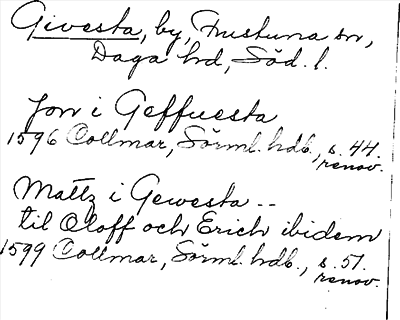 Givesta, by, Frustuna sn,
Daga hd, Söd. l.
Jon i Geffuesta
1596 Collmar, Sörml. hdb., s. 44.
renov.
Mattz i Gewesta --
til Oloff och Erich ibidem
1599 Collmar, Sörml. hdb., s. 51.
renov.